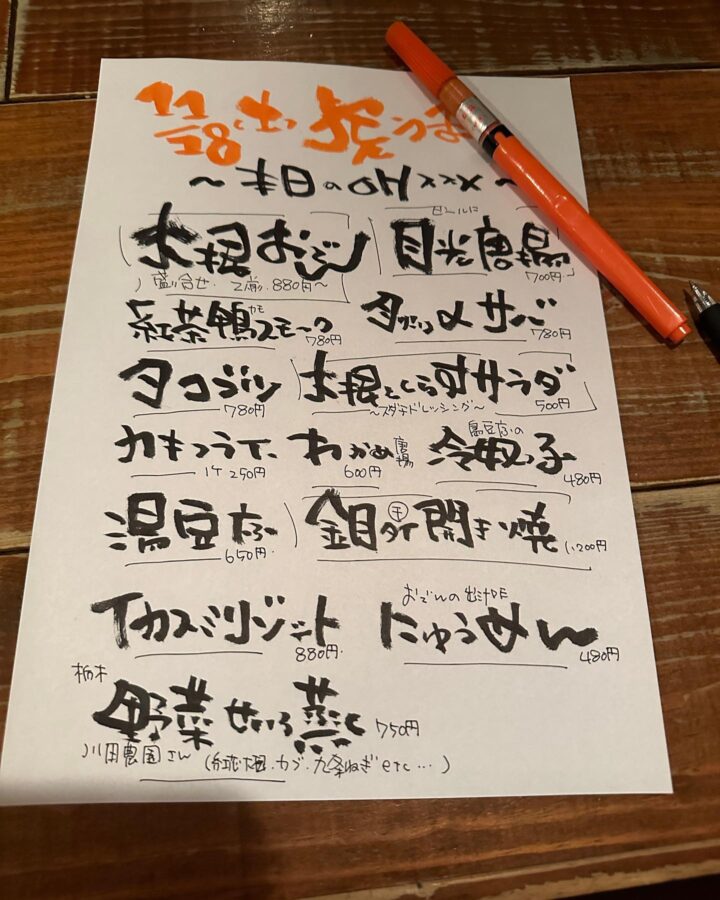 11/28(土)
～本日のOH×××～
大根おでん
盛り合せ 2人前 880円～
ビールに
目光唐揚 700円
紅茶鴨スモーク 780円
カモ
サバ 780円
タコブツ 780円
大根としらすサラダ
～スダチドレッシング～ 500円
カキフライ 1ケ 250円
わかめ唐揚 600円
冷奴っ子 480円
湯豆ふ 650円
金目タイ開き焼 1,200円
イカスミリゾット 880円
おでんの出汁DE
にゅうめん 480円
栃木
野菜せいろ蒸し 750円
川田農園さん (紅芯大根.カブ.九条ねぎ etc…)